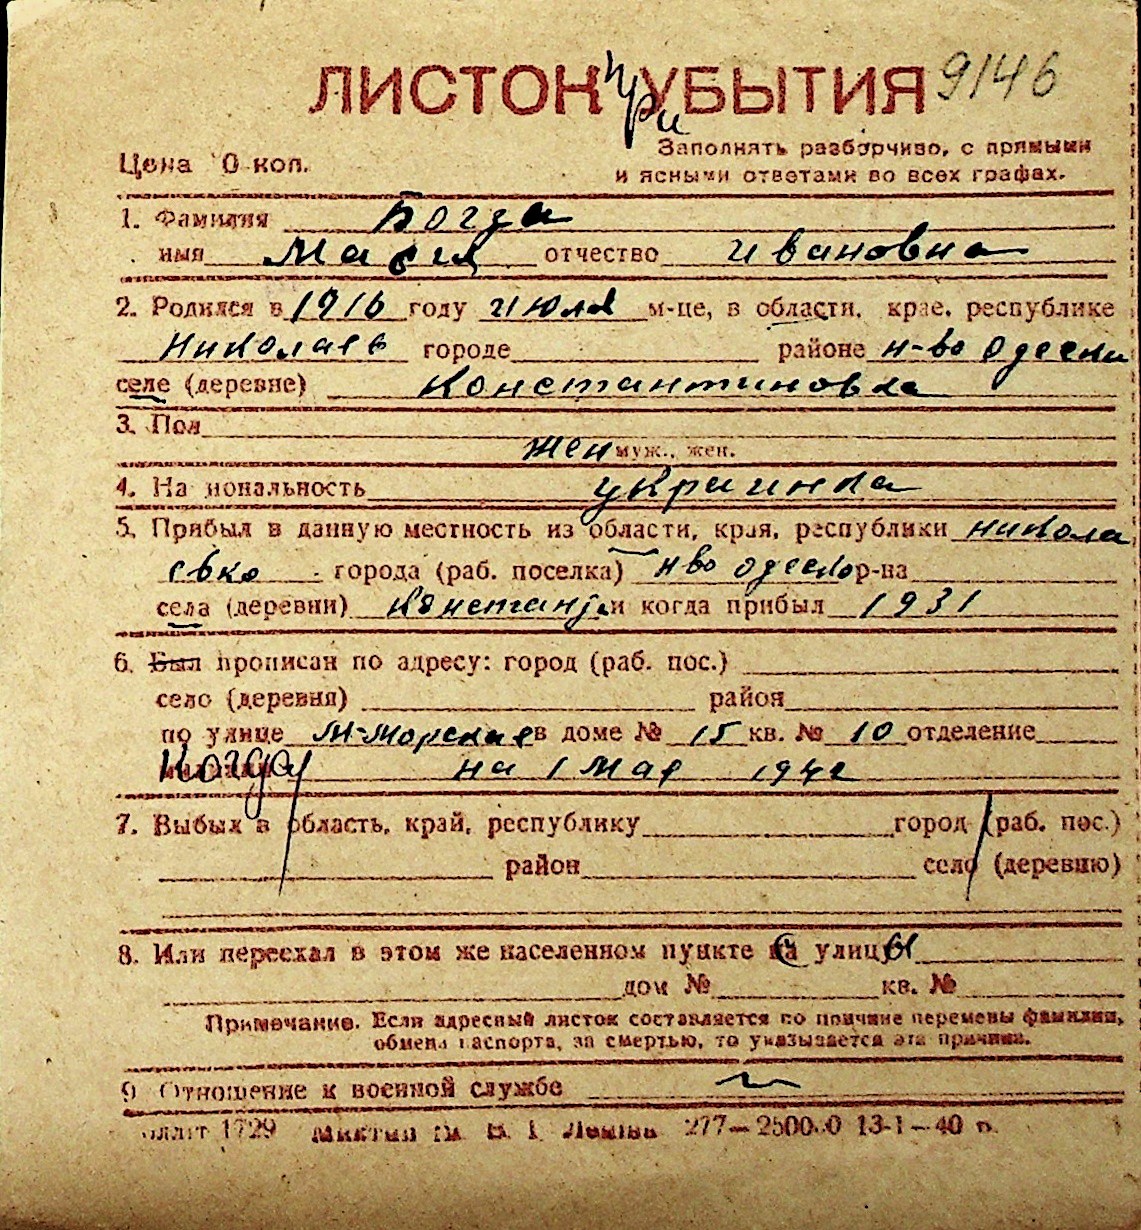 ЛИСТОК при УБЫТИЯ 9146
Цена 10 коп.
Заполнять разборчиво, с прямыми
и ясными ответами во всех графах.
1. Фамилия Богда
имя Мария отчество Ивановна
2. Родился в 1916 году июля м-це, в области, крае, республике
Николаев городе районе н-во одески
селе (деревне) Константиновка
3. Пол
жен муж., жен.
4. Национальность украинка
5. Прибыл в данную местность из области, края, республики никола
евко города (раб. поселка) н-во одеско р-на
села (деревни) Констант и когда прибыл 1931
6. Был прописан по адресу: город (раб. пос.)
село (деревня) район
по улице М-Морская в доме № 15 кв. № 10 отделение
Когда на 1 Мая 1942
7. Выбыл в область, край, республику город (раб. пос.)
район село (деревню)
8. Или переехал в этом же населенном пункте с улицы
дом № кв. №
Примечание. Если адресный листок составляется по причине перемены фамилии,
обмена паспорта, за смертью, то указывается эта причина.
9 Отношение к военной службе
1729 277—2500.0 13-1—40 г.